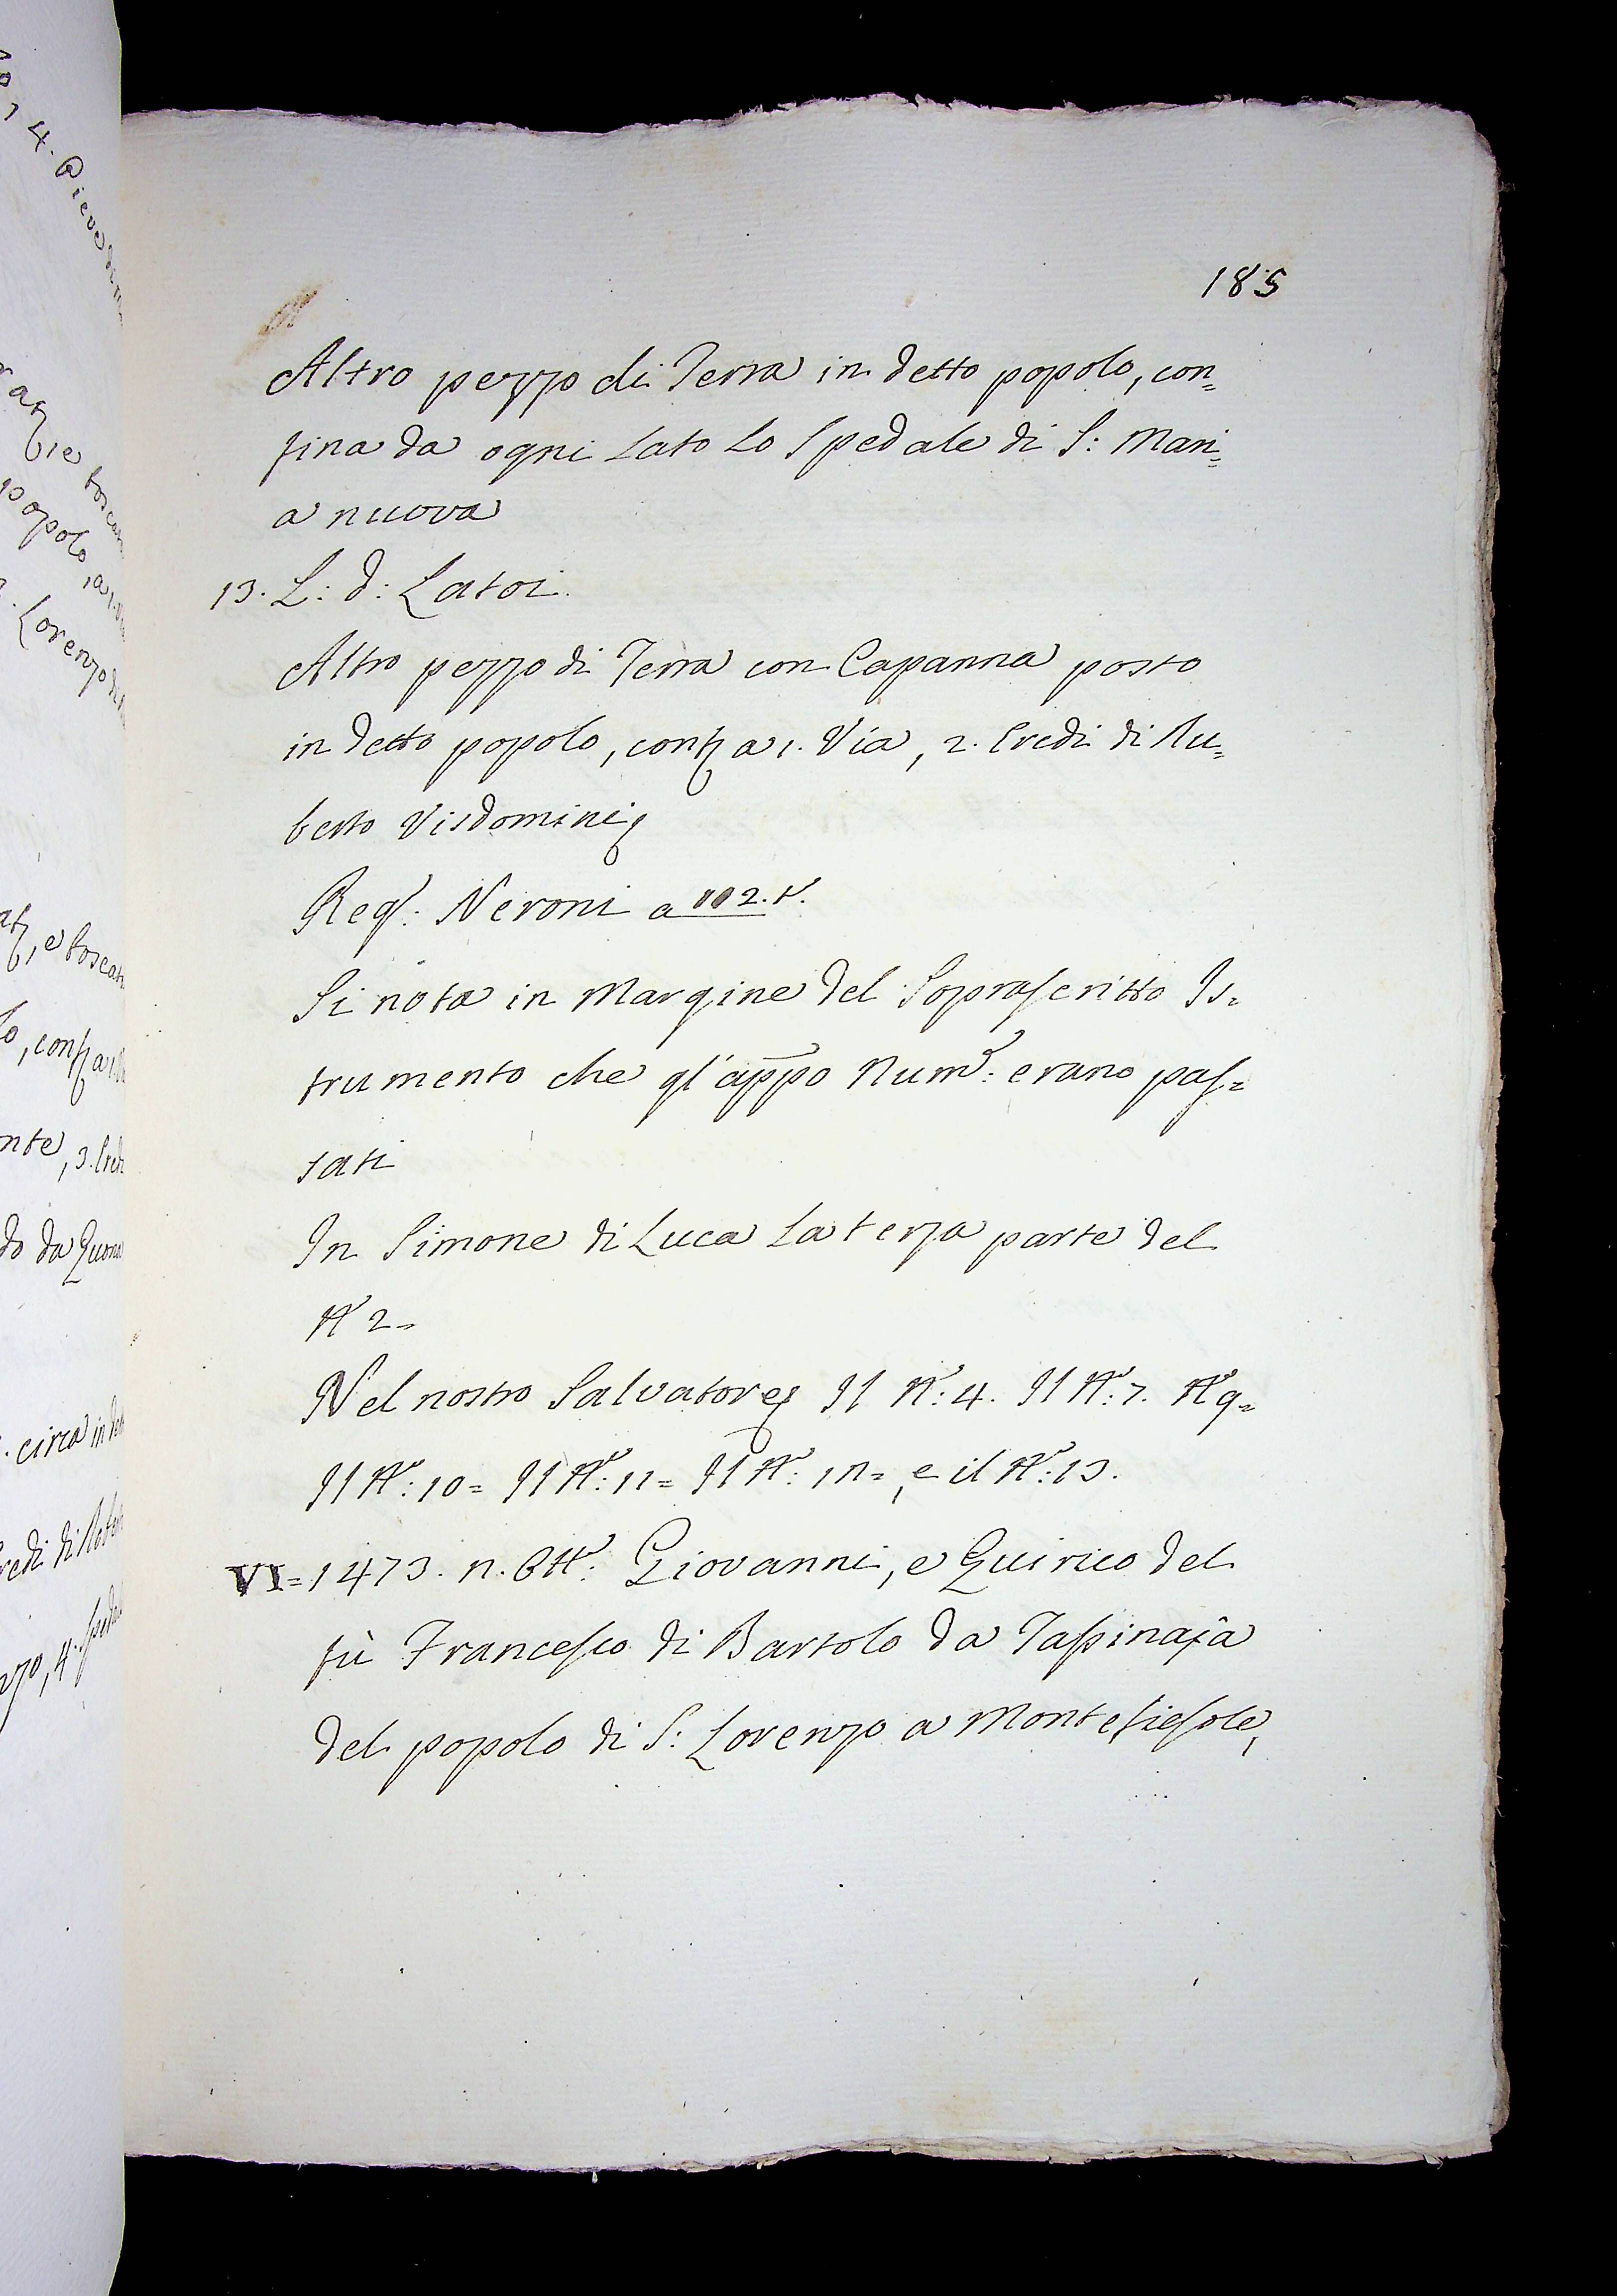 185
Altro pezzo di Terra in detto popolo, con=
fina da ogni lato lo Spedale di S: Mari=
a nuova
13. L: d: Latoi
Altro pezzo di Terra con Capanna posto
in detto popolo, conf a 1. Via, 2. Eredi di Ru=
berto Visdomini
Reg: Neroni a 102. t.
Si nota in Margine del Soprascritto Is=
trumento che gl'appo Num: erano pas=
sati
In Simone di Luca la terza parte del
N 2=
Nel nostro Salvatore Il N: 4. Il N: 7. N 9=
Il N: 10= Il N: 11= Il N: 12=, e il N: 13.
VI= 1473. n. Ott: Giovanni, e Quirico del
fù Francesco di Bartolo da Tassinaja
del popolo di S: Lorenzo a Montefiesole,